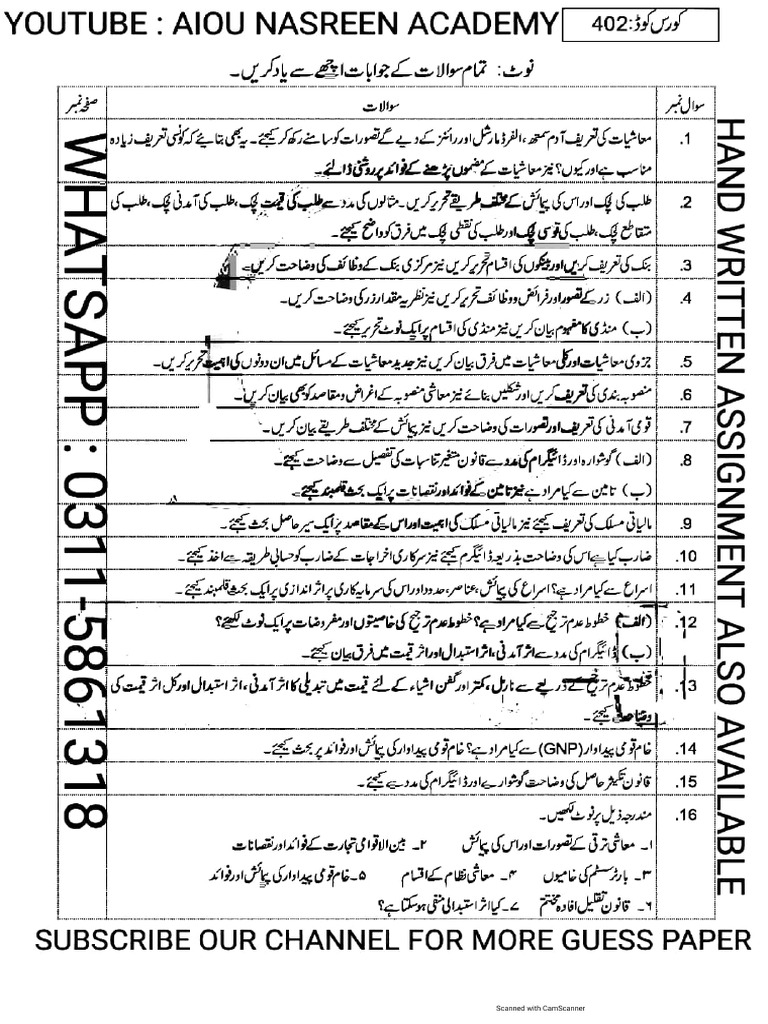 YOUTUBE : AIOU NASREEN ACADEMY
کورس کوڈ:402
نوٹ: تمام سوالات کے جوابات اچھے سے یاد کریں۔
سوال نمبر سوالات صفحہ نمبر
1. معاشیات کی تعریف آدم سمتھ، الفرڈ مارشل اور رابنز کے دیے گے تصورات کو سامنے رکھ کر کیجئے۔ یہ بھی بتایئے کہ کونسی تعریف زیادہ
مناسب ہے اور کیوں؟ نیز معاشیات کے مضموں پڑھنے کے فوائد پر روشنی ڈالئے۔
2. طلب کی لچک اور اس کی پیمائش کے مختلف طریقے تحریر کریں۔ مثالوں کی مدد سے طلب کی قیمت لچک، طلب کی آمدنی لچک، طلب کی
متقاطع لچک، طلب کی قوسی لچک اور طلب کی نقطی لچک میں فرق کو واضح کیجئے۔
3. بنک کی تعریف کریں اور بینکوں کی اقسام تحریر کریں نیز مرکزی بنک کے وظائف کی وضاحت کریں۔
4. (الف) زر کے تصور اور فرائض و وظائف تحریر کریں نیز نظریہ مقدار زر کی وضاحت کریں۔
(ب) منڈی کا مفہوم بیان کریں نیز منڈی کی اقسام پر ایک نوٹ تحریر کیجئے۔
5. جزوی معاشیات اور کلی معاشیات میں فرق بیان کریں نیز جدید معاشیات کے مسائل میں ان دونوں کی اہمیت تحریر کریں۔
6. منصوبہ بندی کی تعریف کریں اور شکلیں بنائے نیز معاشی منصوبہ کے اغراض و مقاصد کو بھی بیان کریں۔
7. قومی آمدنی کی تعریف اور تصورات کی وضاحت کریں نیز پیمائش کے مختلف طریقے بیان کریں۔
8. (الف) گوشوارہ اور ڈائیگرام کی مدد سے قانون متغیر تناسبات کی تفصیل سے وضاحت کیجئے۔
(ب) تامین سے کیا مراد ہے نیز تامین کے فوائد اور نقصانات پر ایک بحث قلمبند کیجئے۔
9. مالیاتی مسلک کی تعریف کیجئے نیز مالیاتی مسلک کی اہمیت اور اس کے مقاصد پر ایک سیر حاصل بحث کیجئے۔
10. ضارب کیا ہے اس کی وضاحت بذریعہ ڈائیگرم کیجئے نیز سرکاری اخراجات کے ضارب کو حسابی طریقہ سے اخذ کیجئے۔
11. اسراع سے کیا مراد ہے؟ اسراع کی پیمائش، عناصر، حدود اور اس کی سرمایہ کاری پر اثر اندازی پر ایک بحث قلمبند کیجئے۔
12. (الف) خطوط عدم ترجیح سے کیا مراد ہے؟ خطوط عدم ترجیح کی خاصیتوں اور مفروضات پر ایک نوٹ لکھئے؟
(ب) ڈائیگرام کی مدد سے اثر آمدنی، اثر استبدال اور اثر قیمت میں فرق بیان کیجئے۔
13. خطوط عدم ترجیح کے ذریعے سے نارمل، کمتر اور گفن اشیاء کے لئے قیمت میں تبدیلی کا اثر آمدنی، اثر استبدال اور کل اثر قیمت کی
وضاحت کیجئے۔
14. خام قومی پیداوار (GNP) سے کیا مراد ہے؟ خام قومی پیداوار کی پیمائش اور فوائد پر بحث کیجئے۔
15. قانون تکثیر حاصل کی وضاحت گوشوارے اور ڈائیگرام کی مدد سے کیجئے۔
16. مندرجہ ذیل پر نوٹ لکھیں۔
۱۔ معاشی ترقی کے تصورات اور اس کی پیمائش ۲۔ بین الاقوامی تجارت کے فوائد اور نقصانات
۳۔ بارٹر سسٹم کی خامیوں ۴۔ معاشی نظام کے اقسام ۵۔ خام قومی پیداوار کی پیمائش اور فوائد
۶۔ قانون تقلیل افادہ مختتم ۷۔ کیا اثر استبدالی منفی ہو سکتا ہے؟
WHATSAPP : 0311-5861318
HAND WRITTEN ASSIGNMENT ALSO AVAILABLE
SUBSCRIBE OUR CHANNEL FOR MORE GUESS PAPER
Scanned with CamScanner